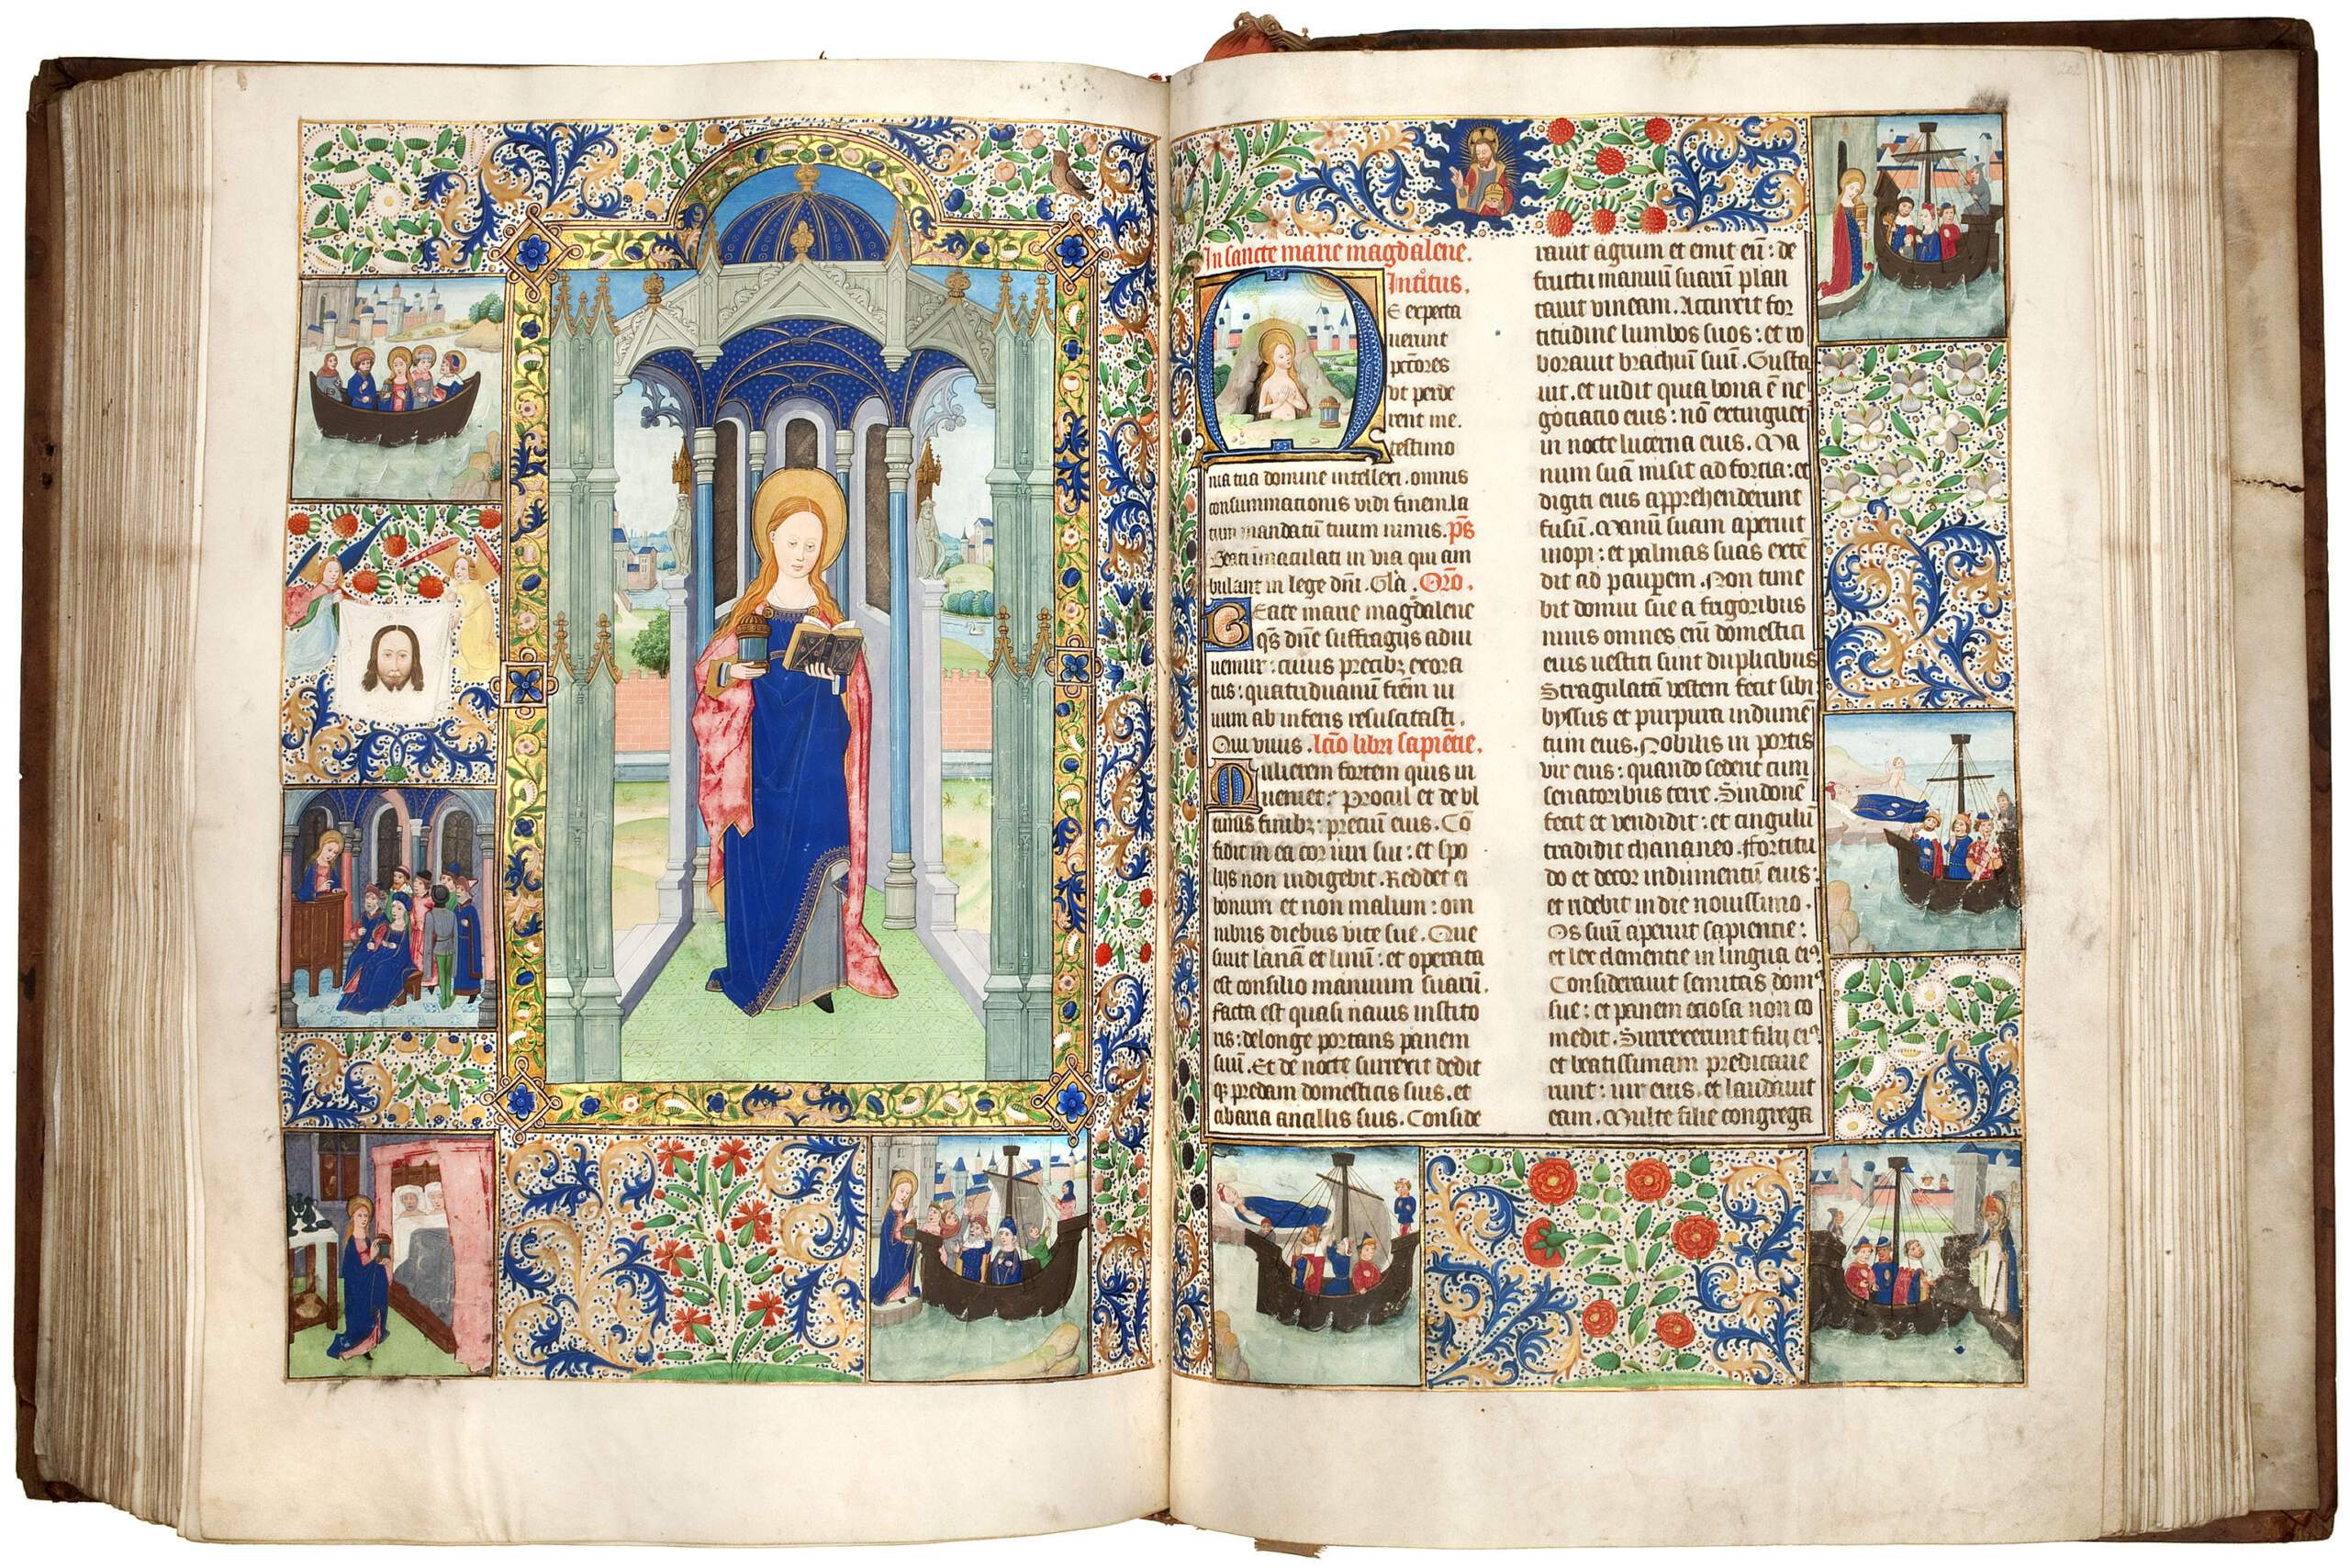 In sancte marie magdalene.
Introitus.
E expecta
uerunt
pctōres
vt perde
rent me.
testimo
nia tua domine intellexi. omnis
consummationis vidi finem. la
tum mandatū tuum nimis. ps
Beati immaculati in via qui am
bulant in lege dn̄i. Glā. Orō.
Eate marie magdalene
qs̄ dn̄e suffragijs adiu
uemur: cuius precibꝫ exora
tus: quatriduanū frēm ui
uum ab inferis resuscitasti.
Qui viuis. lcō̄ libri sapiētie.
Mulierem fortem quis in
ueniet: Procul et de vl
timis finibꝫ: preciū eius. Cō
fidit in ea cor uiri sui: et spo
lijs non indigebit. Reddet ei
bonum et non malum: om
nibus diebus vite sue. Que
siuit lanā et linū: et operata
est consilio manuum suarū.
facta est quasi nauis instito
ris: delonge portans panem
suū. Et de nocte surrexit dedit
qꝫ predam domesticis suis. et
cibaria ancillis suis. Conside
rauit agrum et emit eū: de
fructu manuū suarū plan
tauit vineam. Accinxit for
titudine lumbos suos: et ro
borauit brachiū suū. Gusta
uit. et uidit quia bona ē ne
gociatio eius: nō extinguet
in nocte lucerna eius. Ma
num suā misit ad fortia: et
digiti eius apprehenderunt
fusū. Manū suam aperuit
inopi: et palmas suas extē
dit ad paupem. Non time
bit domui sue a frigoribus
niuis omnes eni domestici
eius uestiti sunt duplicibus
Stragulatā vestem fecit sibi
byssus et purpura indumē
tum eius. Nobilis in portis
vir eius: quando sederit cum
senatoribus terre. Sindonē
fecit et vendidit: et cingulū
tradidit chananeo. ffortitu
do et decor indumentū eius:
et ridebit in die nouissimo.
Os suū aperuit sapientie:
et lex clementie in lingua eiꝰ
Considerauit semitas domꝰ
sue: et panem ociosa non co
medit. Surrexerunt filij eiꝰ
et beatissimam predicaue
runt: uir eius. et laudauit
eam. Multe filie congrega